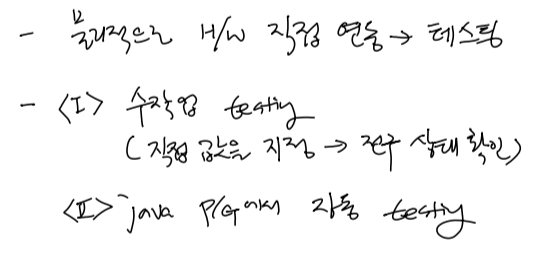 - 물리적으로 H/W 직접 연동 → 테스팅
- <I> 수작업 testing
( 직접 값을 지정 → 전구 상태 확인)
<II> java P/G에서 자동 testing